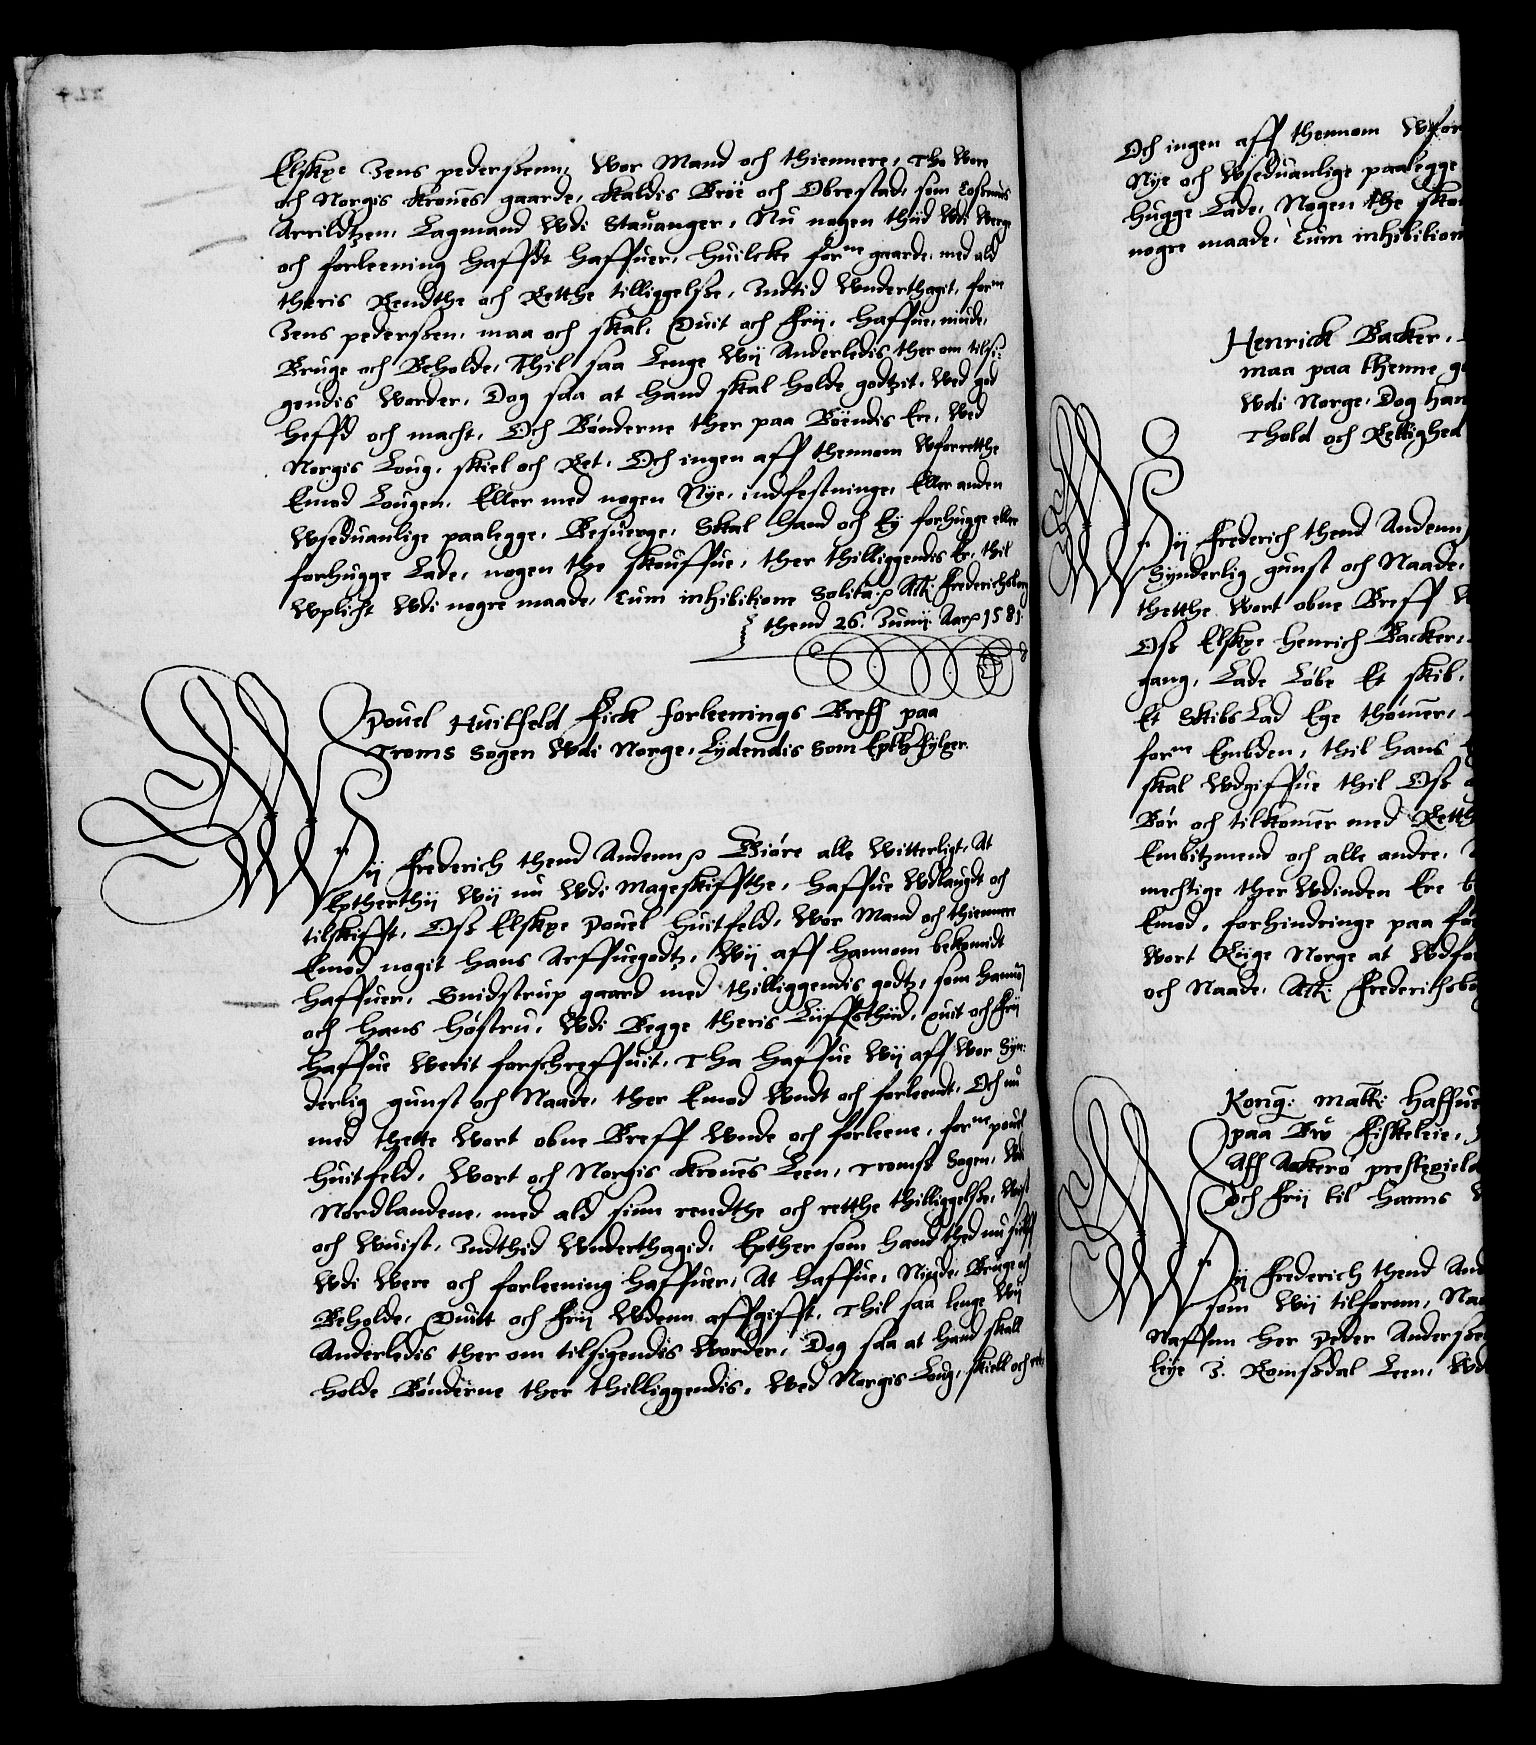 Elskxe Jens pederßenn, Wor Mand och thiennere, Tho Wore
och Norgis Krones gaarde, Kaldis Bröe och Obrestad, som Cosmus
Arrildtzen, Lagmand Wdi Stauanger, Nu nogen thiid Wdi Werge
och forleening haffdt haffuer, huilcke forne gaarde, med ald
theris Rendthe och Retthe tilliggelße, Indtid Wnderthagit, forne
Jens pederßen, maa och skal, Quit och Frij, haffue, niude,
Bruge och Beholde, Thil saa Lenge Wij Anderledis ther om tilsi-
gendis Worder, Dog saa at hand skal holde godtzit, Wed god
heffd och macht, Och Bönderne ther paa Boendis Ere, Wed
Norgis Loug, skiel och Ret, Och ingen aff thennom Wforretthe
Emod Lougen, Eller med nogen Nye, indfestninge, Eller anden
Wseduanlige paalegge, Besuerge, Skal hand och Ey forhugge eller
forhugge Lade, nogen the skouffue, ther thilliggendis Er, thil
Wplicht Wdi nogre maade, Cum inhibitione Solita: Actt: Frederichsborg
thend 26. Junij Aar 1581.
Pouel Huitfeld Fick forleenings Breff paa
Troms Sogen Wdi Norge, Lydendis som Epther fylger.
Wij Frederich thend Andenn Giöre alle Witterligt, At
Eptherthij Wij nu Wdi Mageskiffthe, haffue Wdlaugdt och
tilskifft, Oß Elskxe Pouel Huitfeld, Wor Mand och thiennere
Emod nogit hans Arffuegodtz, Wij aff hannom bekomidt
haffuer, Snidstrup gaard med thilliggendis godtz, som hannij
och hans höstru, Wdi Begge theris Liiffsthiid, quit och frij
haffue Werit forschreffuit, Tha haffue Wij aff Wor Syn-
derlig gunst och Naade, ther Emod Wndt och forleendt, Och nu
med thette Wort obne Breff Wnde och forleene, forne pouel
huitfeld, Wort och Norgis Krones Leen, Tromß Sogen, Wdi
Nordlandene, med ald sinn rendthe och retthe thilliggelße, Wist
och Wuist, Indthid Wnderthagid, Epther som hand thed nu sielff
Wdi Were och forleening haffuer, At haffue, Niude, Bruge och
Beholde, Quitt och Frij Wdenn affgifft, Thil saa lenge Wij
Anderledis ther om tilsigendis Worder, Dog saa at hand skall
holde Bönderne ther thilliggendis, Wed Norgis Loug, skiell och ret,
Och ingen aff thennom Wfor
Nye och Wseduanlige paalegge
hugge Lade, Nogen the skou
nogre maade, Cum inhibition
Henrick Backer,
maa paa thenne
Wdi Norge, Dog han
Thold och Rettighed
Wij Frederich thend Andenn
Synderlig gunst och Naade,
thetthe Wort obne Breff
Oß Elskxe Henrich Backer,
gang, Lade Löbe Et skib,
Et Skibs Lad Ege thömer,
forne Embden, thil hans
skal Wdgiffue thil Oß
Bör och tilkomer med Retth
Embitzmend och alle andre,
mechtige ther Wdinden Ere
Emod, forhindringe paa
Wort Rijge Norge at Wdfö
och Naade, Actt: Frederichsborg
Konig: Matt: haffue
paa Bro Fiskeleie,
Aff Ackerö prestegield
Och frij til hanns
Wij Frederich thend And
som Wij tilfornn,
Naffsan her Peder Anderßen
leye J. Romßdal Leen, Wdi